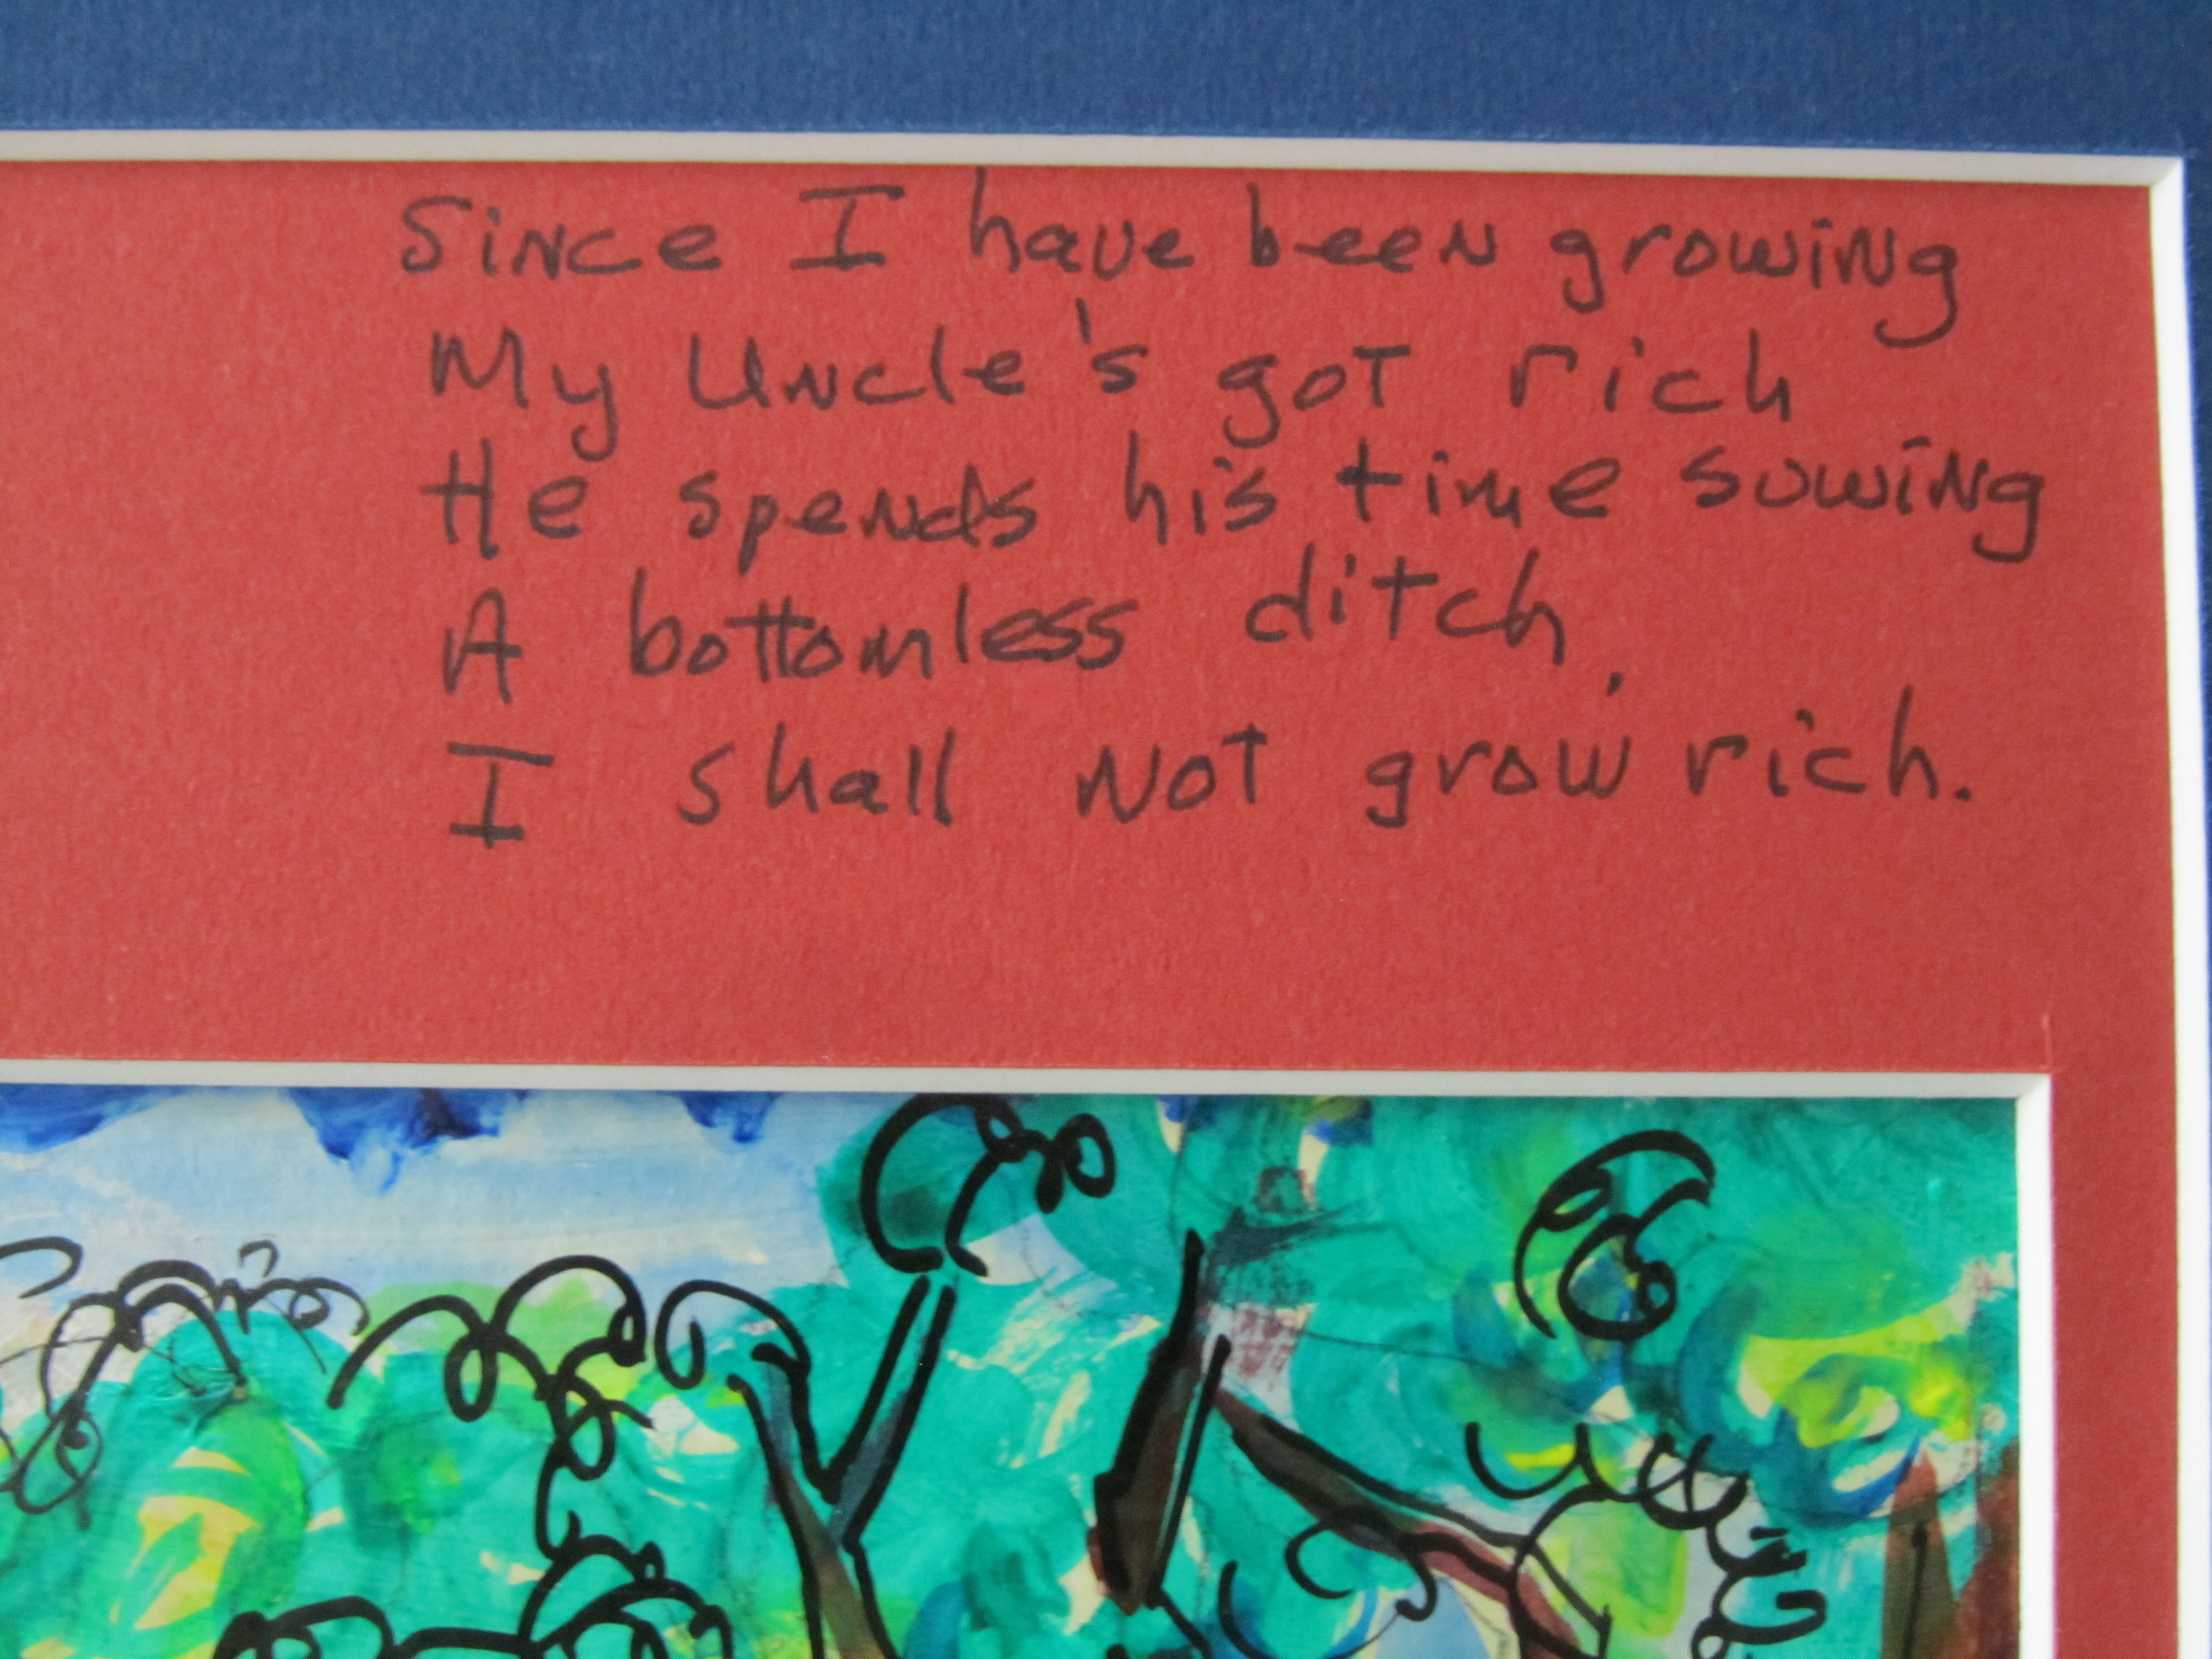 Since I have been growing
My Uncle's got rich
He spends his time sowing
A bottomless ditch,
I shall not grow rich.